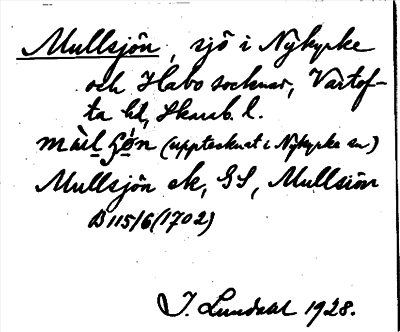 Mullsjön, sjö i Nykyrke
och Habo socknar, Vartof-
ta hd, Skarab. l.
(upptecknat i Nykyrka sn)
Mullsjön ek, GS, Mullsiön
B115/6 (1702)
J. Lundahl 1928.